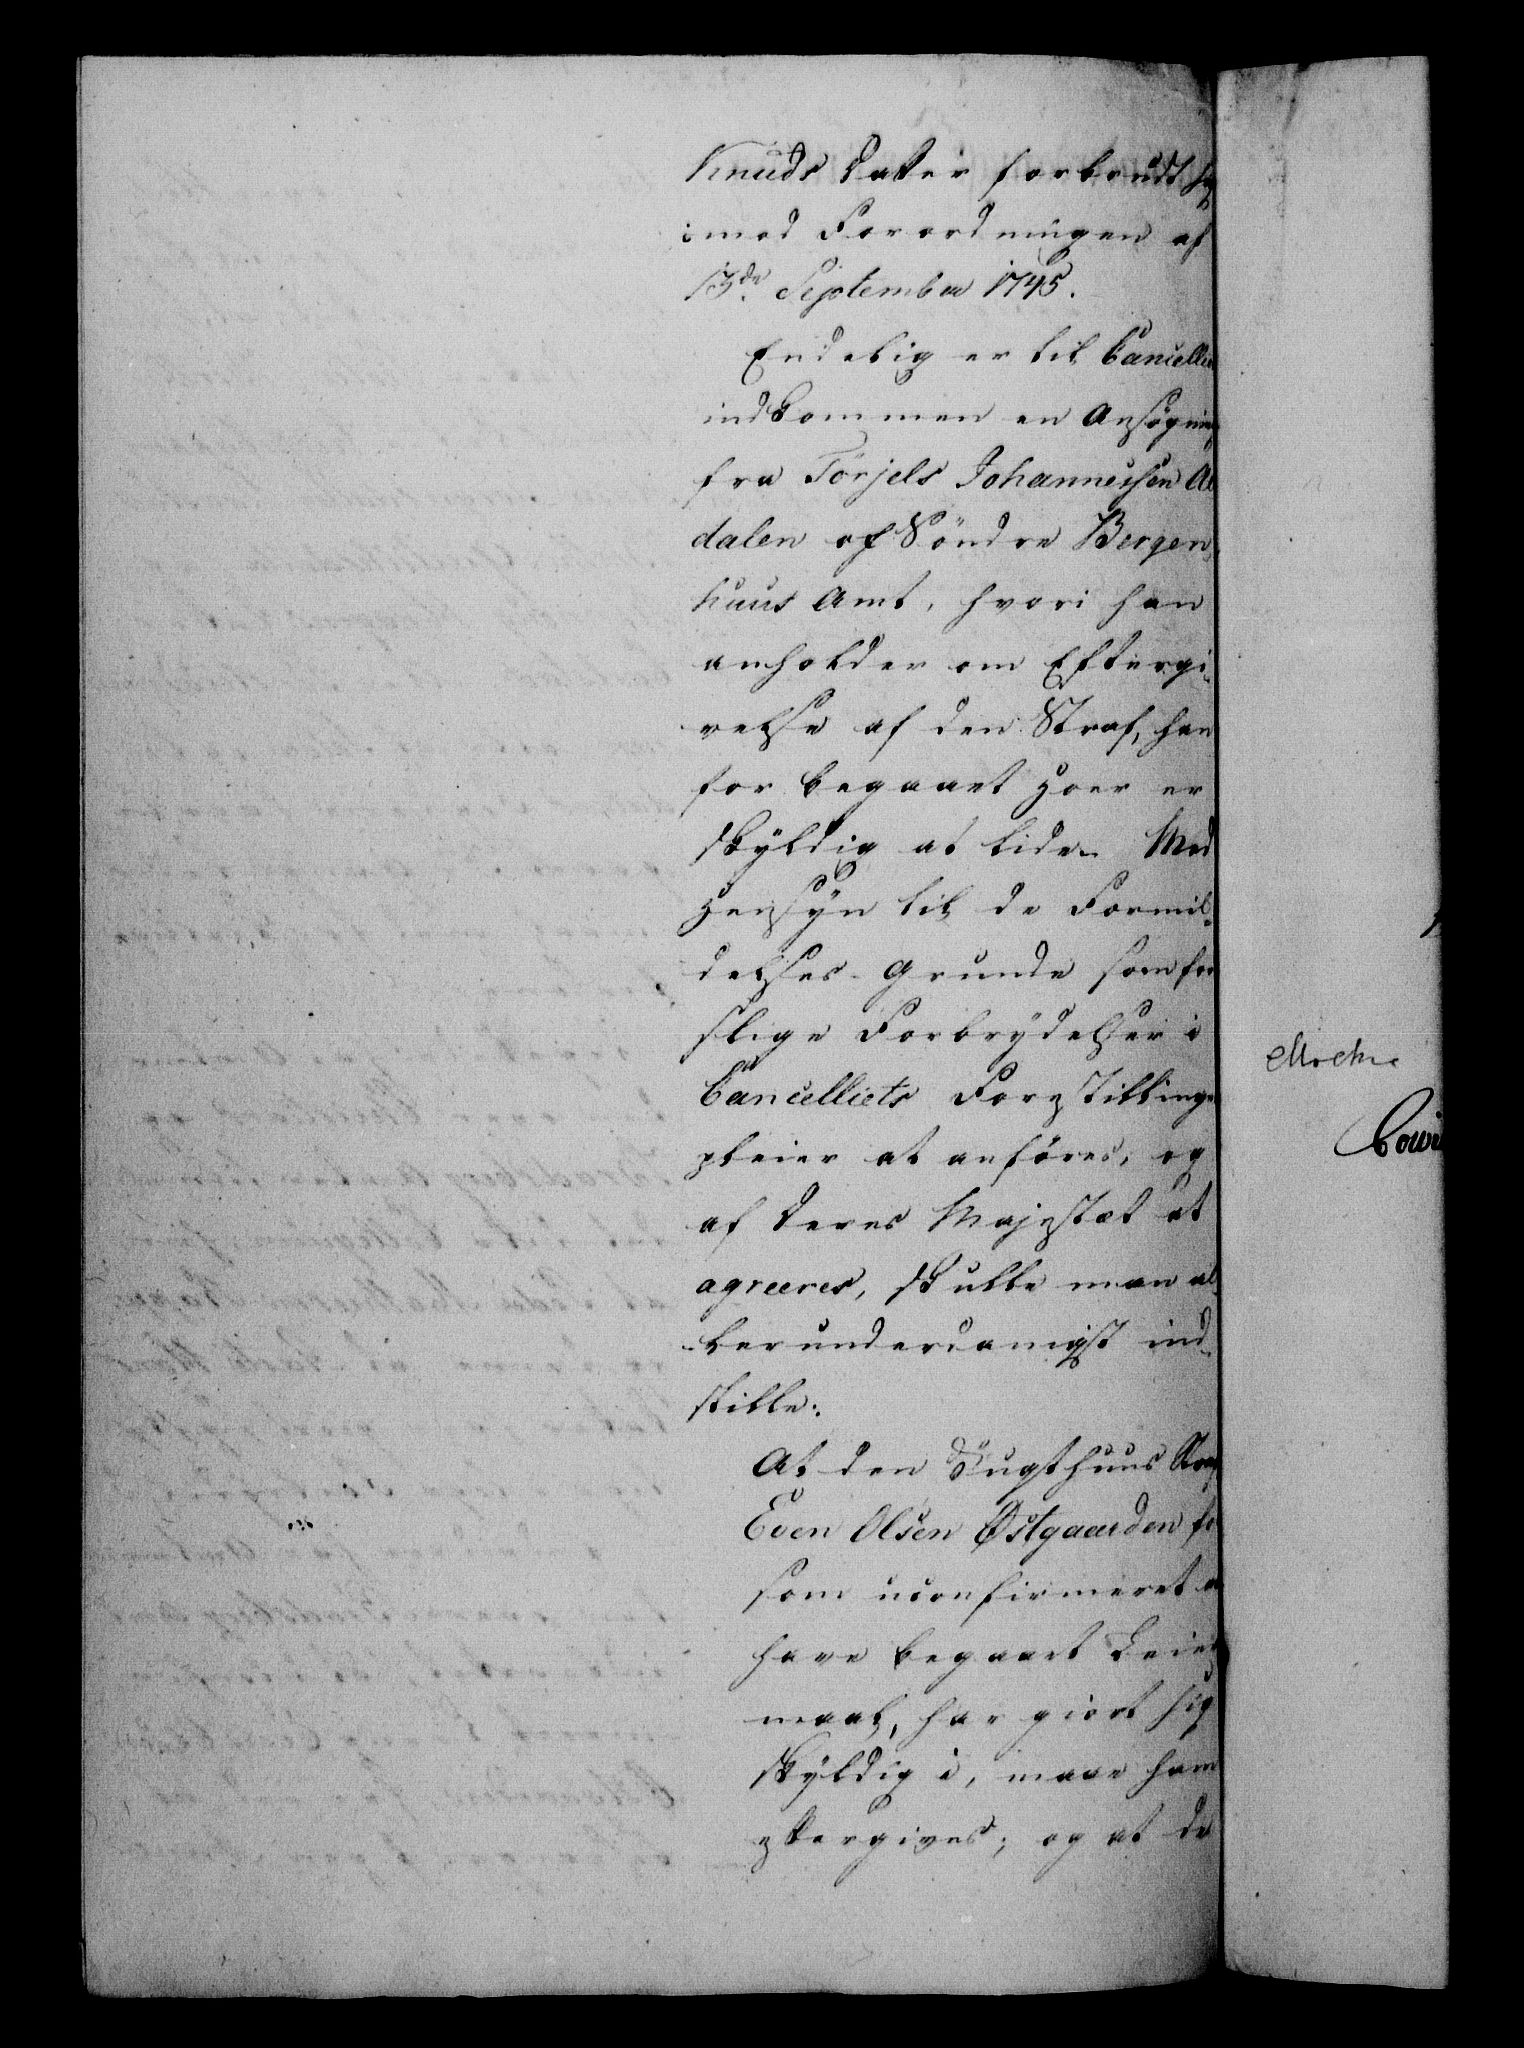 Knuds Datter forbrudt sig
imod Forordningen af
13de September 1745.
Endelig er til Cancelliet
indkommen en Ansögning
fra Törjels Johannessen Al
dalen af Söndre Bergen,
huus Amt, hvori han
anholder om Eftergi,
velse af den Straf, han
for begaaet Hoer er
skyldig at lide. Med
Hensyn til de Formil,
delses-Grunde som for
slige Forbrydelser i
Cancelliets Forestillinger
pleier at anföres, og
af Deres Majestæt at
agreeres, skulle man al,
lerunderdanigst ind,
stille:
At den Tugthuus Straf
Even Olsen Østgaarden for
som uconfirmeret at
have begaaet Leier,
maal, har giort sig
skyldig i, maae ham
eftergives; og at de